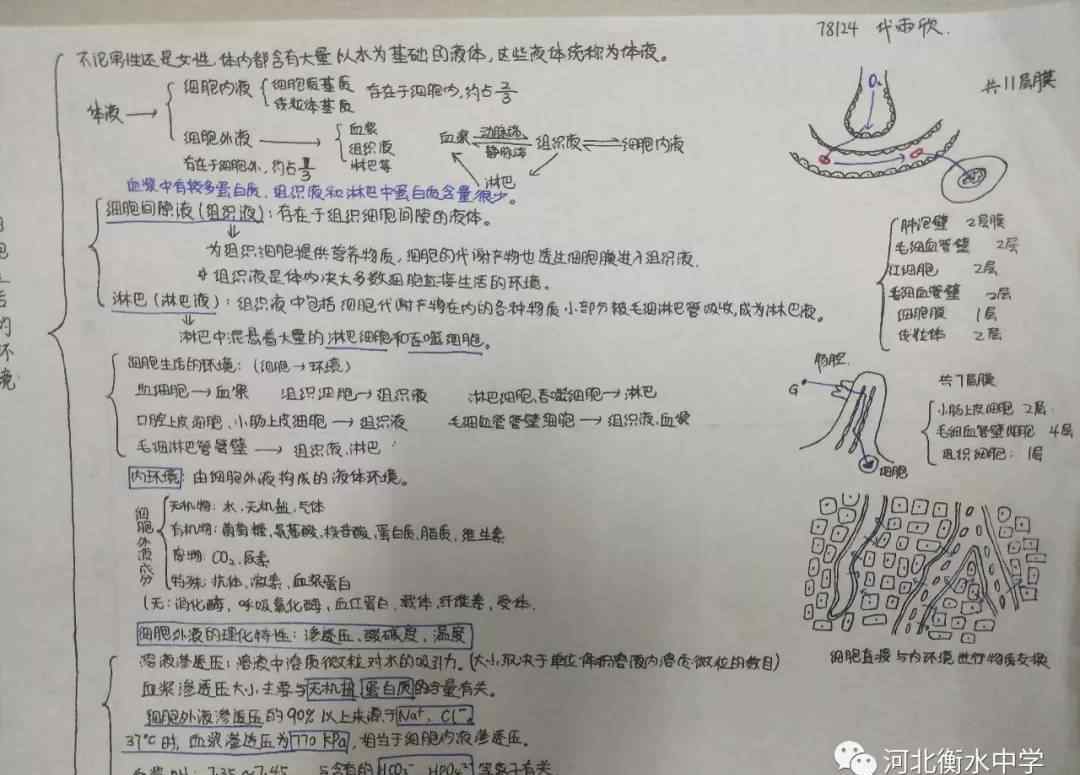 78124 代雨欣
不论男性还是女性,体内都含有大量以水为基础的液体,这些液体统称为体液。
体液
细胞内液
细胞质基质
线粒体基质
存在于细胞内,约占2/3
细胞外液
存在于细胞外,约占1/3
血浆
组织液
淋巴等
血浆 动脉端 静脉端 组织液 细胞内液
淋巴
血浆中有较多蛋白质,组织液和淋巴中蛋白质含量很少。
细胞间隙液(组织液):存在于组织细胞间隙的液体。
为组织细胞提供营养物质,细胞的代谢产物也透过细胞膜进入组织液.
组织液是体内决大多数细胞直接生活的环境。
淋巴(淋巴液):组织液中包括细胞代谢产物在内的各种物质小部分被毛细淋巴管吸收,成为淋巴液。
淋巴中混悬着大量的淋巴细胞和吞噬细胞。
细胞生活的环境:(细胞→环境)
血细胞→血浆 组织细胞→组织液 淋巴细胞,吞噬细胞→淋巴
口腔上皮细胞、小肠上皮细胞→组织液 毛细血管管壁细胞→组织液,血浆
毛细淋巴管管壁→组织液,淋巴
内环境:由细胞外液构成的液体环境。
细胞外液成分
无机物:水,无机盐,气体
有机物:葡萄糖,氨基酸,核苷酸,蛋白质,脂质,维生素
废物:CO₂,尿素
特殊:抗体,激素,血浆蛋白
(无:消化酶,呼吸氧化酶,血红蛋白,载体,纤维素,受体.
细胞外液的理化特性:渗透压,酸碱度,温度
溶液渗透压:溶液中溶质微粒对水的吸引力。(大小取决于单位体积溶液内溶质微粒的数目)
血浆渗透压大小主要与无机盐 蛋白质的含量有关。
细胞外液渗透压的90%以上来源于Na⁺、Cl⁻。
37℃时,血浆渗透压为770kPa,相当于细胞内液渗透压。
血浆pH:7.35~7.45 与含有的HCO₃⁻ HPO₄²⁻等离子有关
O₂
共11层膜
肺泡壁 2层膜
毛细血管壁 2层
红细胞 2层
毛细血管壁 2层
细胞膜 1层
线粒体 2层
肠腔
G
细胞
共7层膜
小肠上皮细胞 2层.
毛细血管壁细胞 4层
组织细胞: 1层
细胞直接与内环境进行物质交换
河北衡水中学